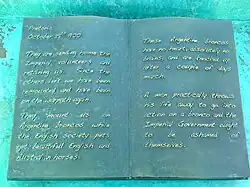 "Pretoria
October 15th 1900
They are sending home the
Imperial volunteers and
retaining us. Since the
others left we have been
remounted and have been
on the warpath again.
They mount us on
Argentine broncos while
the English Society pets
get beautiful English and
Austral n horses.
These Argentine broncos
have no heart, absolutely no
brains, and are finished up
after a couple of days
march.
A man practically throws
his life away to go into
action on a bronco and the
Imperial Government ought
to be ashamed of
themselves.